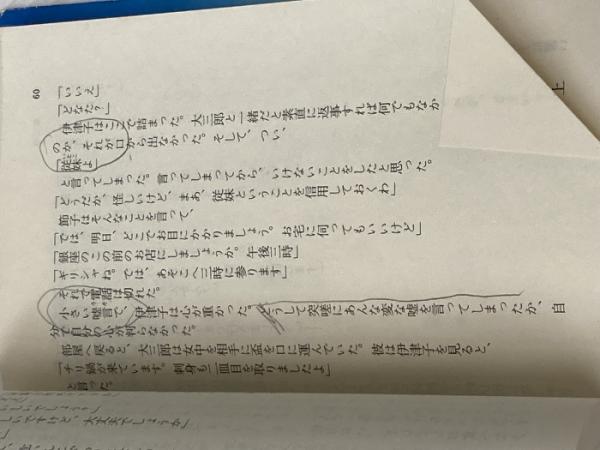 上
60
「いいえ」
「どなた?」
伊津子はここで詰まった。大三郎と一緒だと素直に返事すれば何でもなか
のか、それが口から出なかった。そして、つい、
「従妹よ」
と言ってしまった。言ってしまってから、いけないことをしたと思った。
「どうだか、怪しいけど、まあ、従妹ということを信用しておくわ」
節子はそんなことを言って、
「では、明日、どこでお目にかかりましょう。お宅に伺ってもいいけど」
「銀座のこの前のお店にしましょうか。午後三時」
「ギリシャね。では、あそこへ三時に参ります」
それで電話は切れた。
小さい嘘言で、伊津子は心が重かった。どうして突嗟にあんな変な嘘を言ってしまったか、自
分で自分の心が判らなかった。
部屋へ戻ると、大三郎は女中を相手に盃を口に運んでいた。彼は伊津子を見ると、
「チリ鍋が来ています。刺身も一皿目を取りましたよ」
と言った。
しいですけど、大丈夫でしょうか」